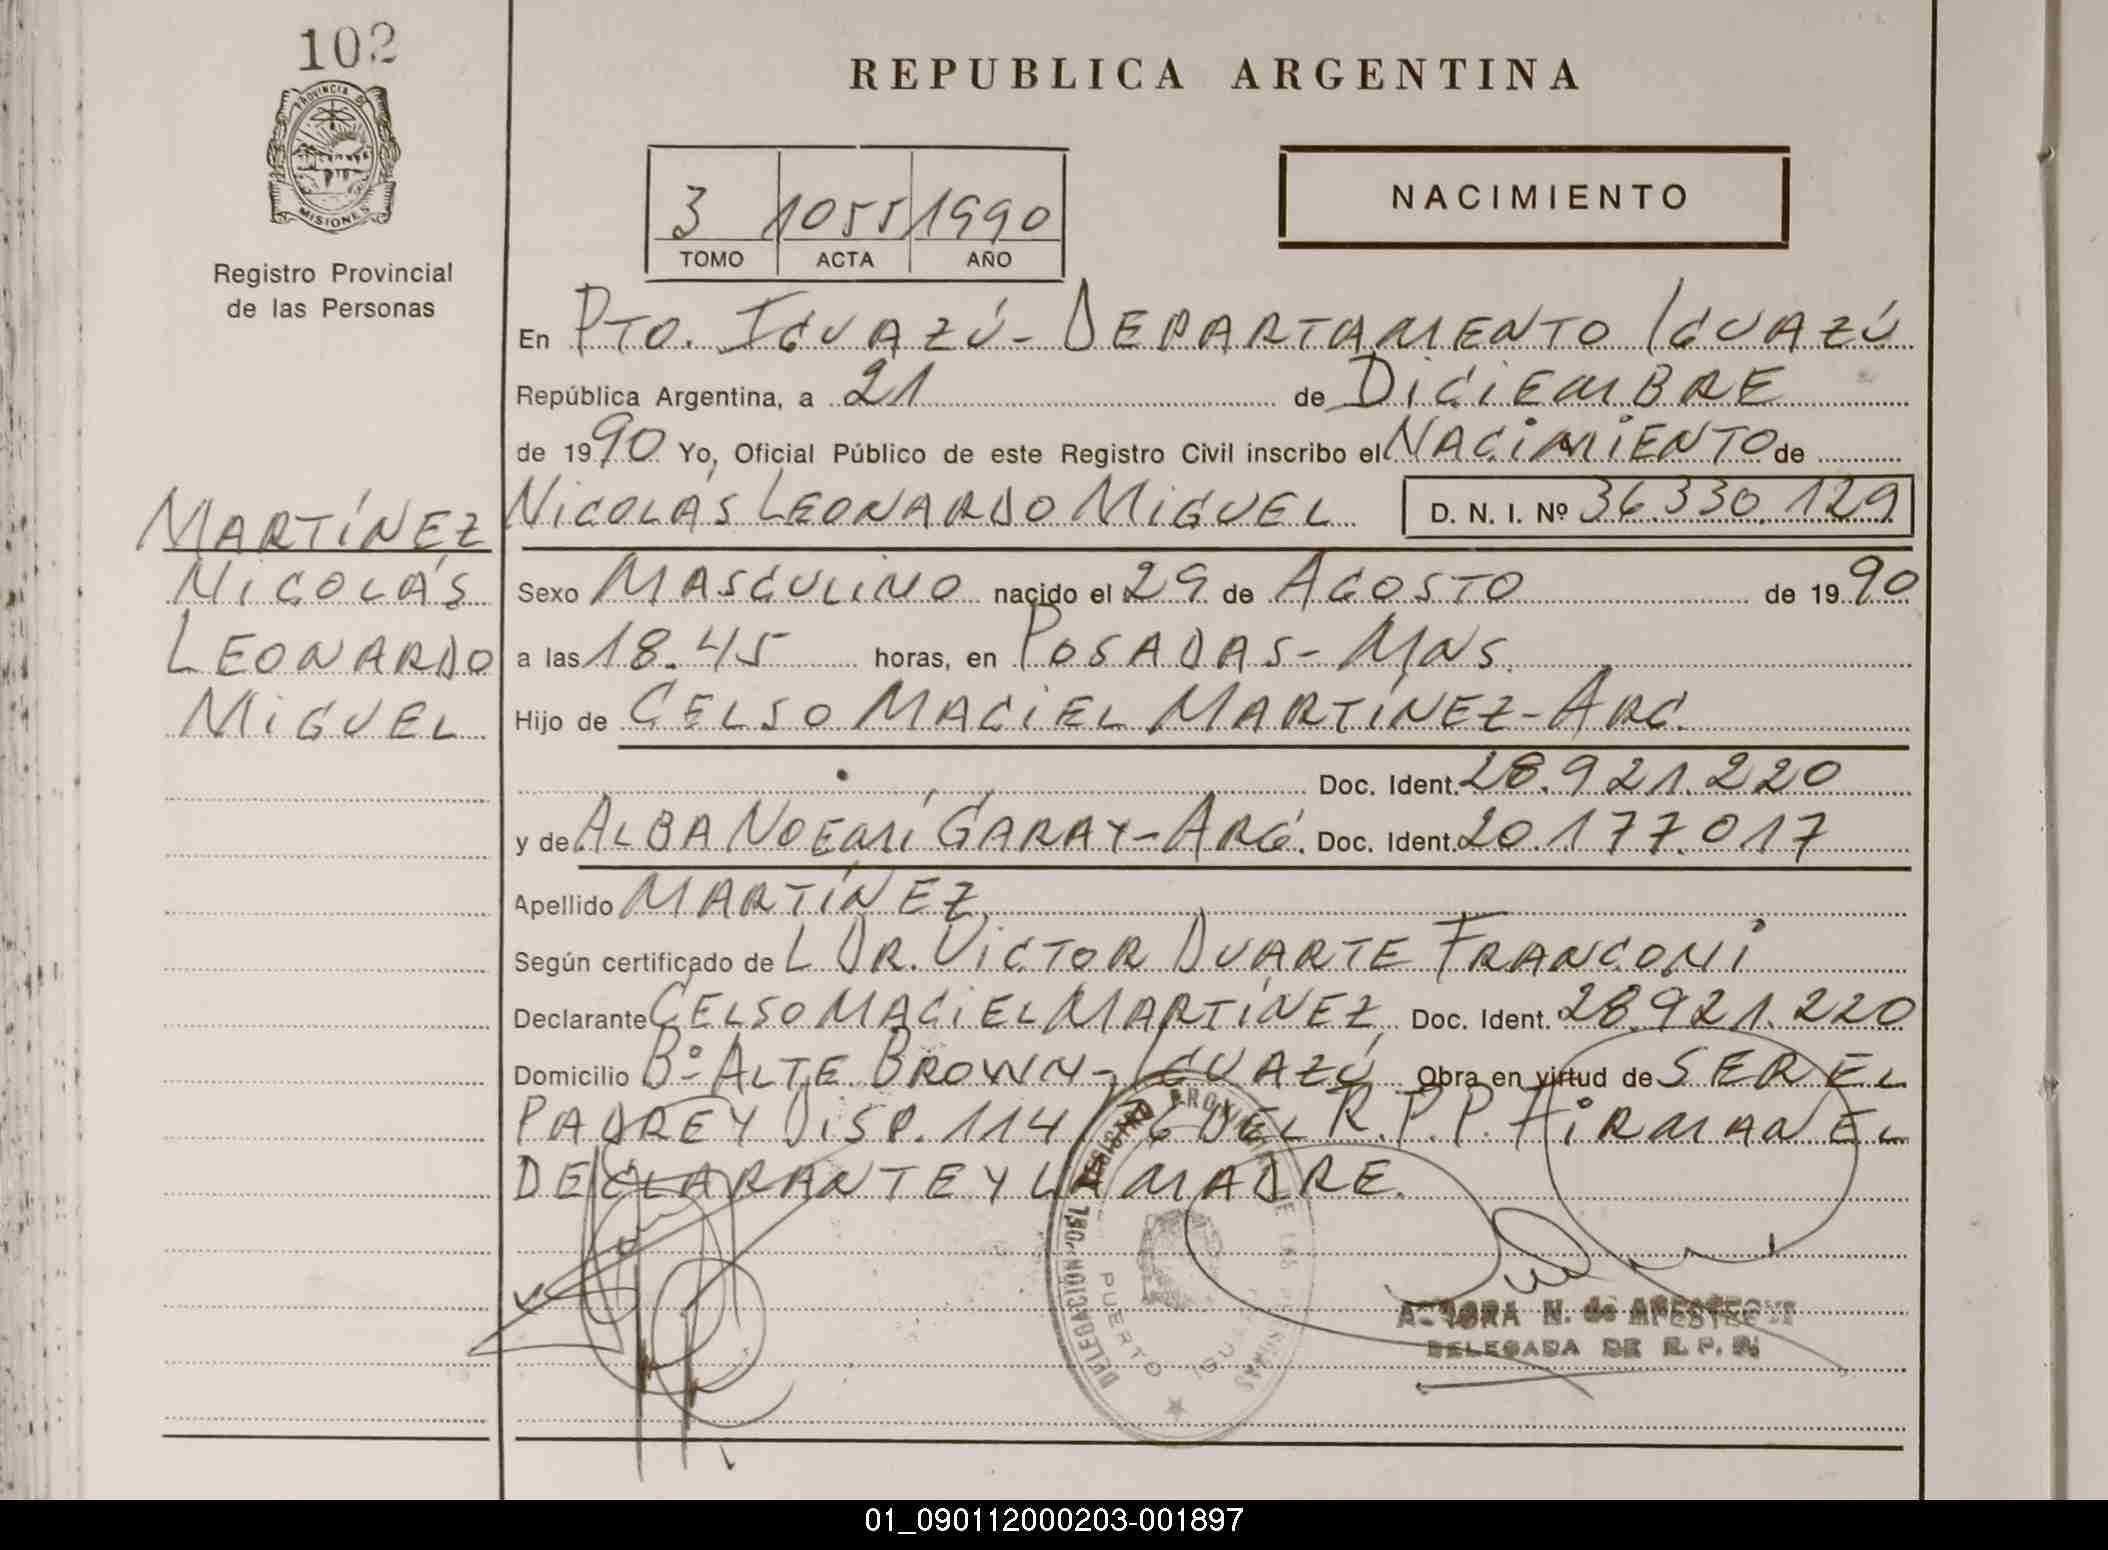 102
PROVINCIA DE
MISIONES
Registro Provincial
de las Personas
REPUBLICA ARGENTINA
3 1055 1990
TOMO ACTA AÑO
NACIMIENTO
En PTO. IGUAZÚ - DEPARTAMENTO IGUAZÚ
República Argentina, a 21 de DICIEMBRE
de 1990 Yo, Oficial Público de este Registro Civil inscribo el NACIMIENTO de
NICOLÁS LEONARDO MIGUEL D. N. I. Nº 36.330.129
MARTÍNEZ
NICOLÁS
LEONARDO
MIGUEL
Sexo MASCULINO nacido el 29 de AGOSTO de 1990
a las 18.45 horas, en POSADAS - MNS.
Hijo de CELSO MACIEL MARTÍNEZ - ARG.
Doc. Ident. 28.921.220
y de ALBA NOEMÍ GARAY - ARG. Doc. Ident. 20.177.017
Apellido MARTÍNEZ
Según certificado de L DR. VICTOR DUARTE FRANCONI
Declarante CELSO MACIEL MARTÍNEZ Doc. Ident. 28.921.220
Domicilio Bº ALTE BROWN - IGUAZÚ Obra en virtud de SER EL
PADRE Y DISP. 114/76 DEL R.P.P. FIRMAN EL
DECLARANTE Y LA MADRE.
DELEGACIÓN DEL REGISTRO PROVINCIAL DE LAS PERSONAS
PUERTO IGUAZU
N. de
DELEGADA DE R. P. P.
01_090112000203-001897